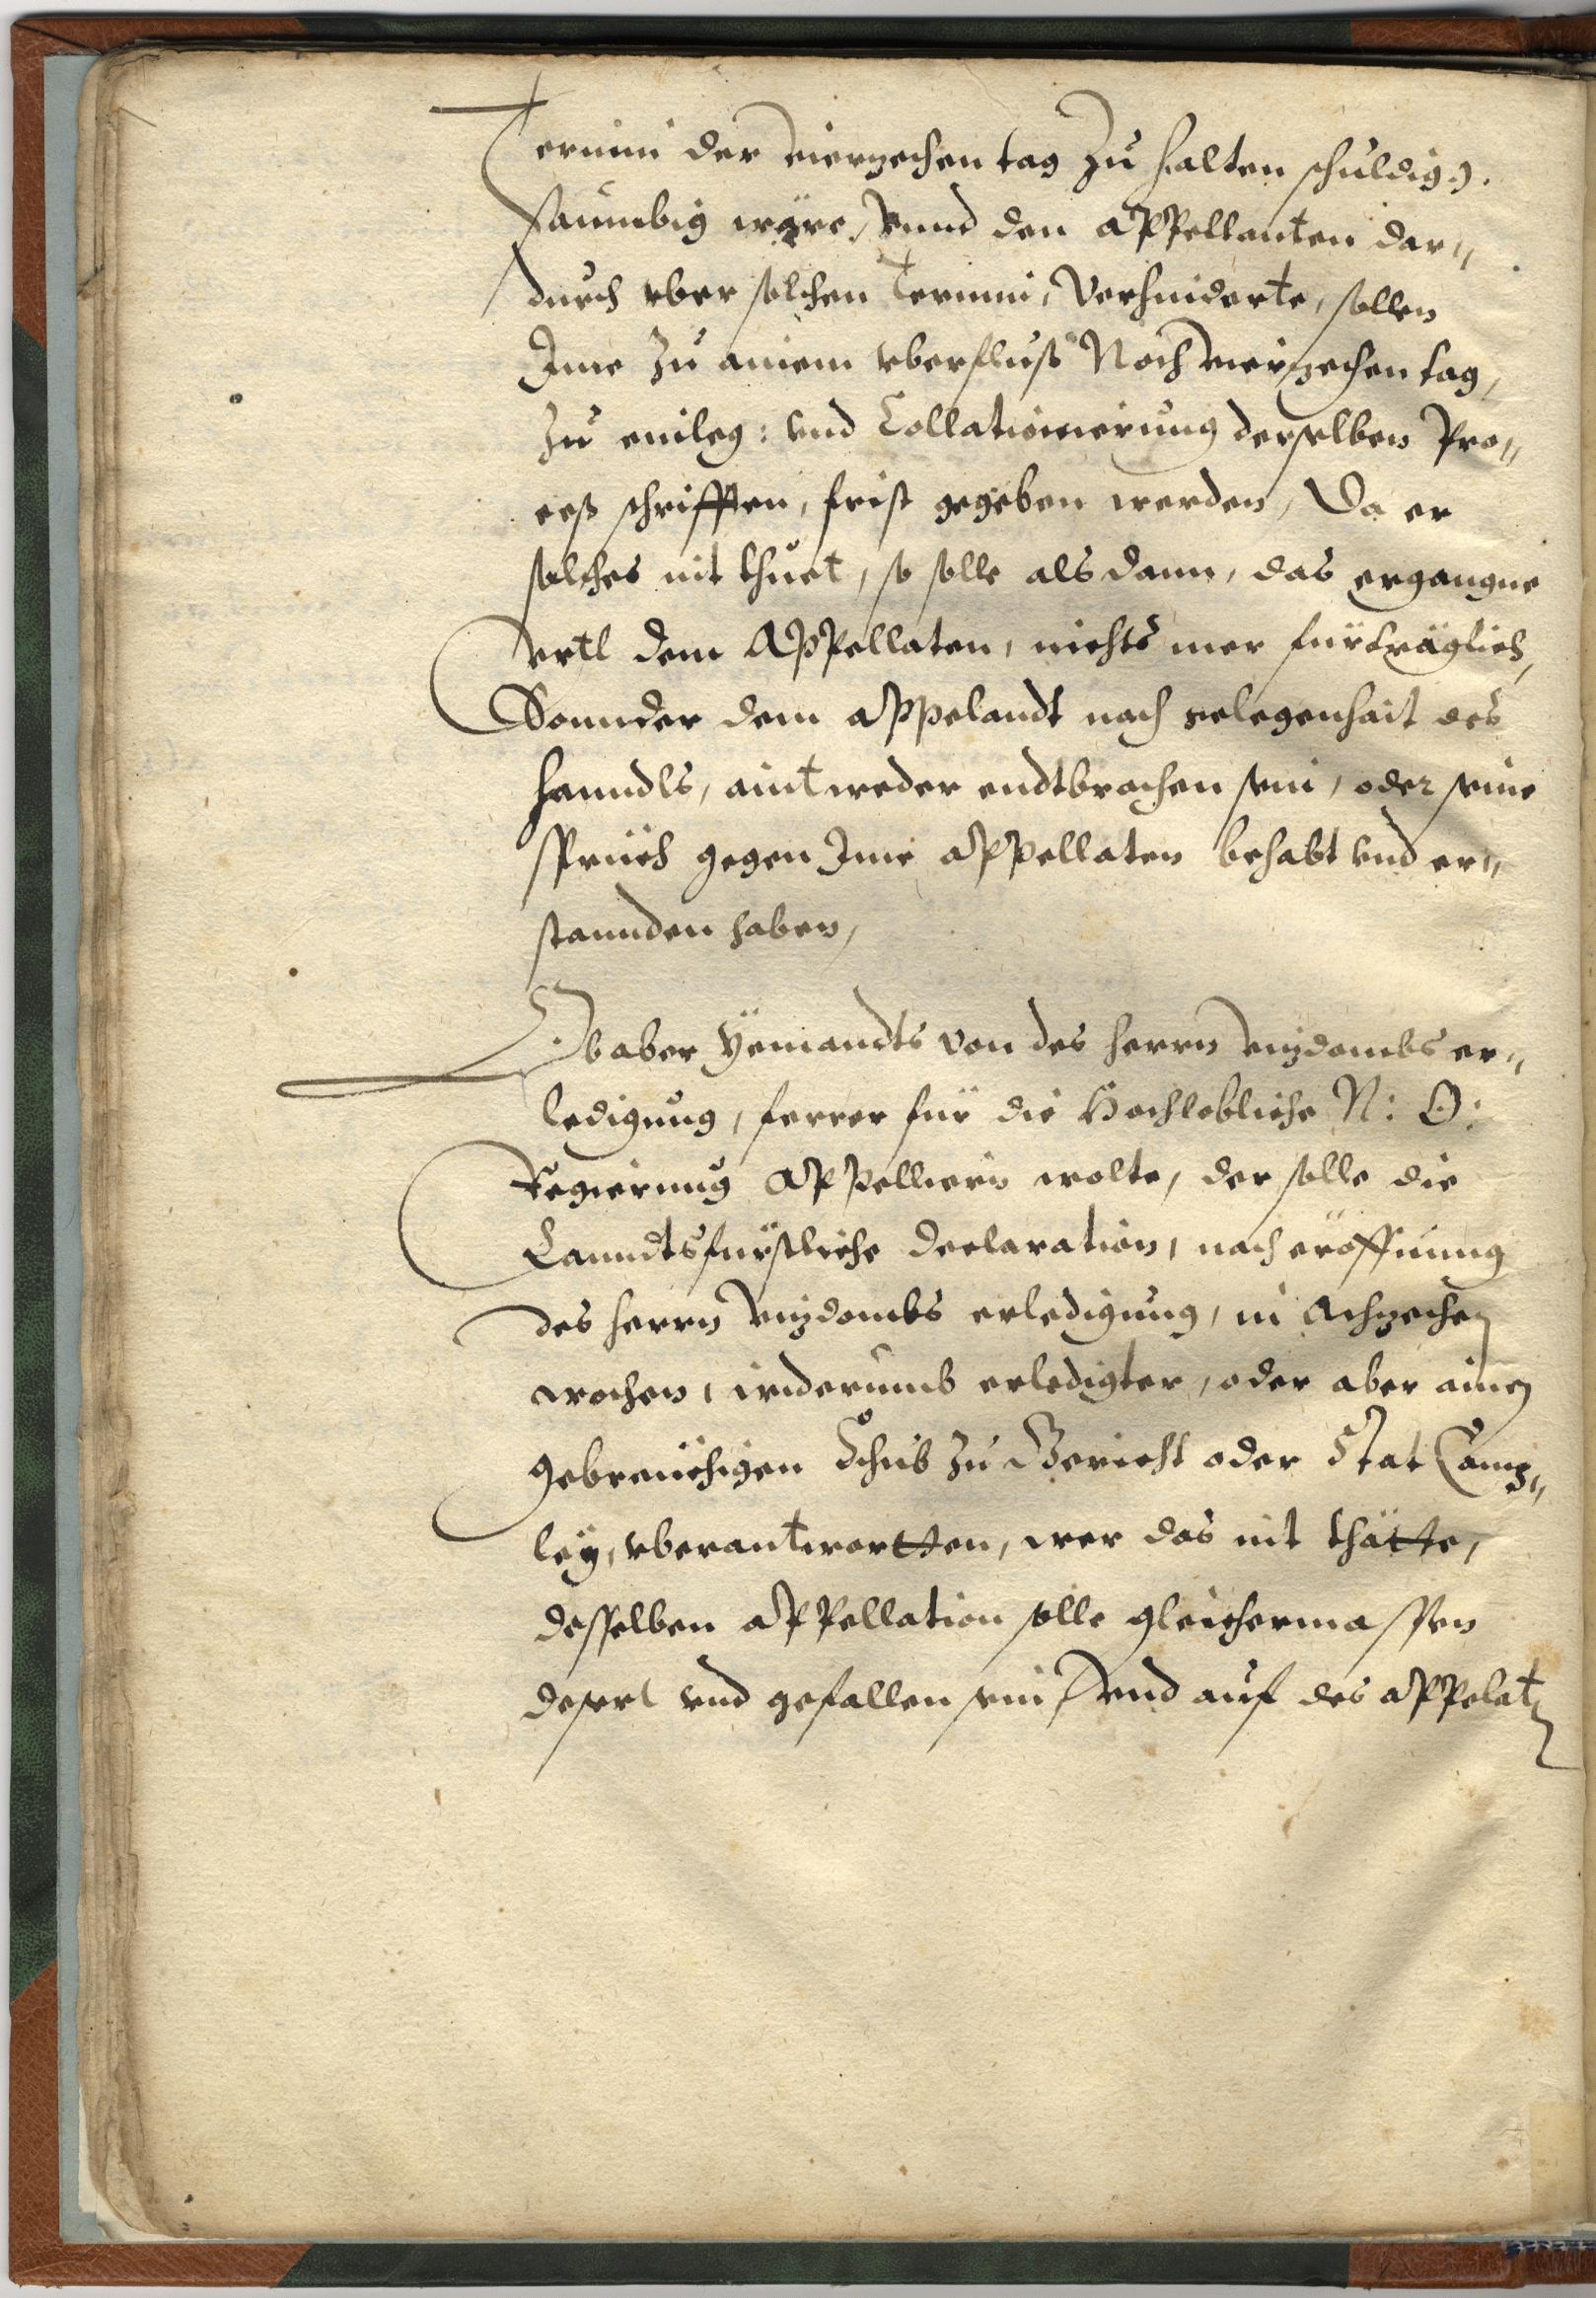 Termini der vierzechen tag zu halten schuldig:
saumbig wäre, vnnd den Appellanten dar„
durch vber solchen Termini, Verhinderte, sollen
Ime zu ainem vberfluß Noch vierzechen tag,
zu einleg: vnd Collationierung derselben Pro„
ceß schrifften, frist gegeben werden, Da er
solches nit thuet, so solle als dann, das ergangne
Vrtl dem Appellaten, nichts mer fürträglich,
Sonnder dem Appelandt nach gelegenhait des
hanndls, aintweder endtbrochen sein, oder seine
sprüch gegen Ime Appellaten behabt vnd er„
stannden haben,
Ob aber Yemandts von des herrn vizdombs er„
ledigung, ferrer für die Hochlobliche N: O:
Regierung Appelliern wolte, der solle die
Lanndtsfürstliche Declaration, nach eröffnung
des herrn vizdombs erledigung, in Achzechen
wochen, widerumb erledigter, oder aber ainen
gebreüchigen Schub zu Gericht oder Stat Canz„
leÿ, vberantwortten, wer das nit thätte,
desselben Appellation solle gleichermassen
desert vnd gefallen sein, vnd auf des Appelaten